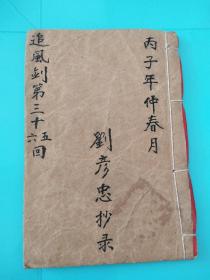 丙子年仲春月
劉彦忠抄录
追風剑第三十五六回